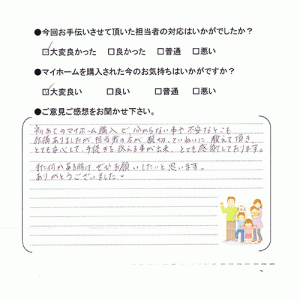 ●今回お手伝いさせて頂いた担当者の対応はいかがでしたか？
☑大変良かった □良かった □普通 □悪い
●マイホームを購入された今のお気持ちはいかがですか？
☑大変良い □良い □普通 □悪い
●ご意見ご感想をお聞かせ下さい。
初めてのマイホーム購入で、分からない事や不安なことも
結構ありましたが、担当者の方が、親切、ていねいに、教えて頂き、
とても安心して、手続きを終える事が出来、とても感謝しております。
また何かある時は、ぜひお願いしたいと思います。
ありがとうございました。